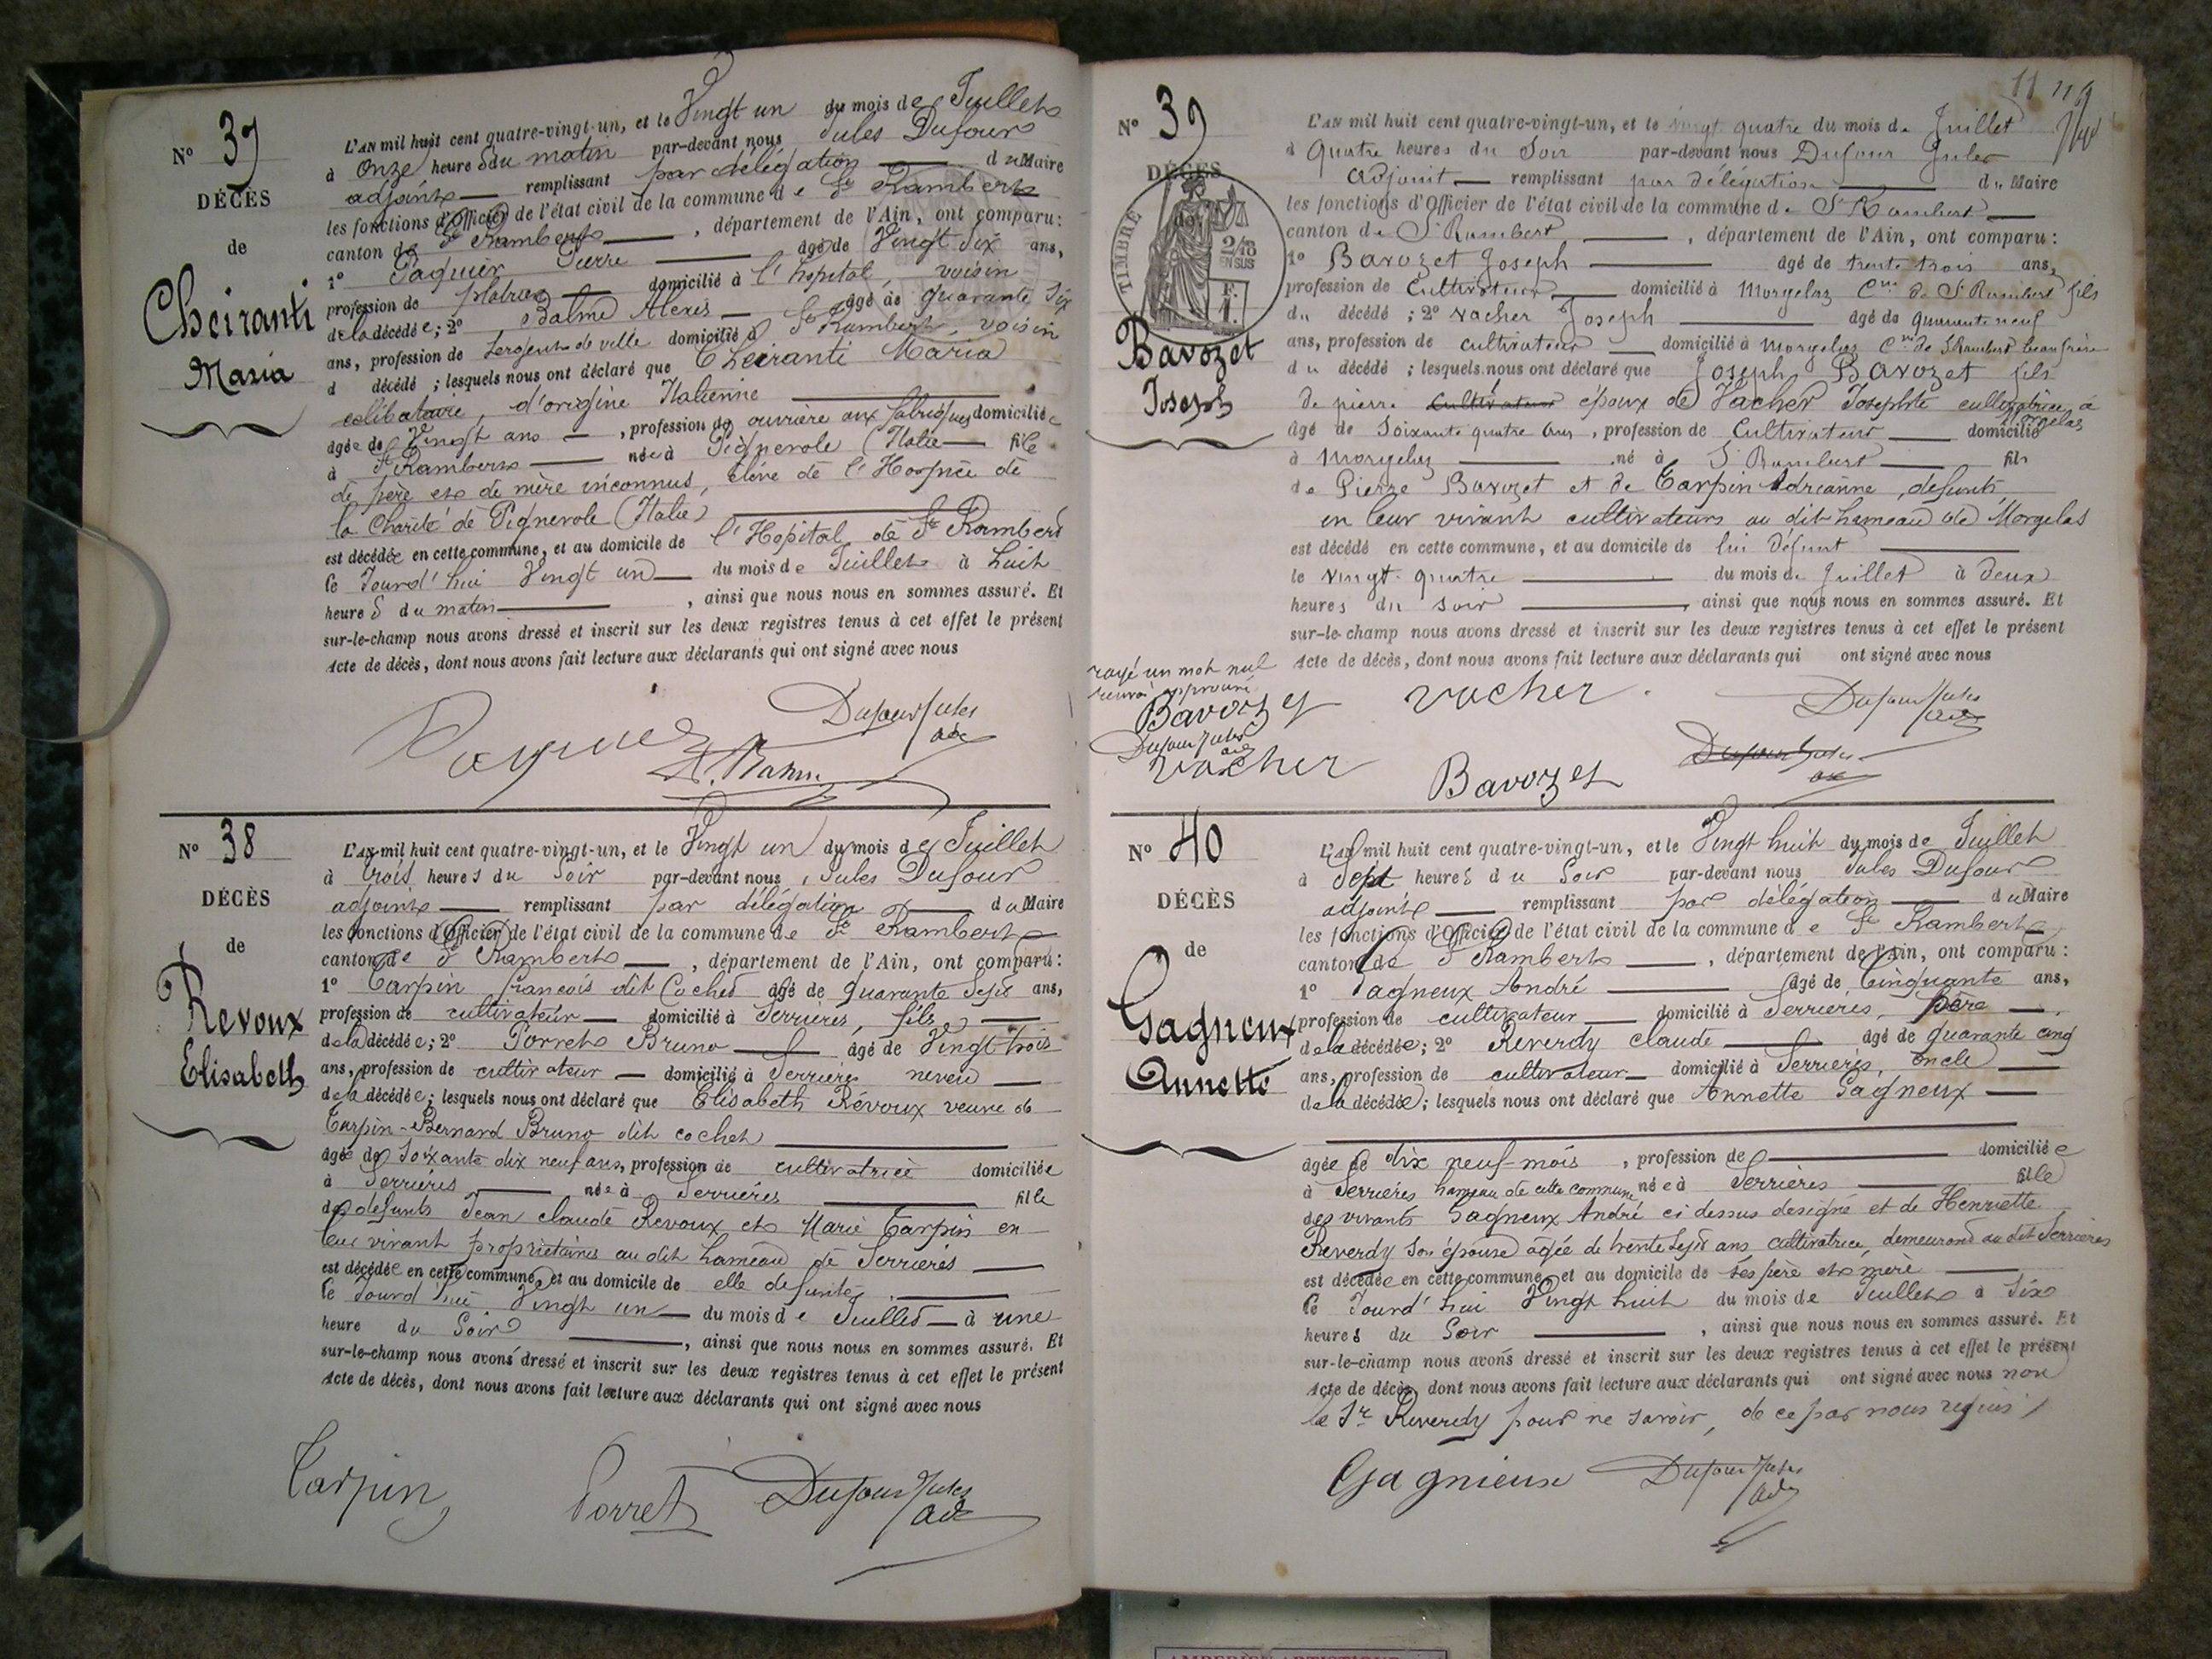 N° 37
DÉCÈS
de
Cheiranti
Maria
L'AN mil huit cent quatre-vingt-un, et le Vingt un du mois de Juillet
à Onze heures du matin par-devant nous Jules Dufour
adjoint remplissant par délégation du Maire
les fonctions d'Officier de l'état civil de la commune de St Rambert
canton de St Rambert, département de l'Ain, ont comparu :
1° Paquier Pierre âgé de Vingt Six ans,
profession de platrier domicilié à l'hopital, voisin
de la décédée ; 2° Balme Alexis âgé de quarante Six
ans, profession de Sergent de ville domicilié à St Rambert, voisin
d décédé ; lesquels nous ont déclaré que Cheiranti Maria
celibataire, d'origine Italienne
âgée de Vingt ans, profession de ouvrière aux fabriques domiciliée
à St Rambert née à Pignerole (Italie) fille
de père et de mère inconnus, élève de l'Hospice de
la Charité de Pignerole (Italie)
est décédée en cette commune, et au domicile de l'Hopital de St Rambert
le Jourd'hui Vingt un du mois de Juillet à huit
heures du matin, ainsi que nous nous en sommes assuré. Et
sur-le-champ nous avons dressé et inscrit sur les deux registres tenus à cet effet le présent
Acte de décès, dont nous avons fait lecture aux déclarants qui ont signé avec nous
Dufour Jules
adt
N° 38
DÉCÈS
de
Revoux
Elisabeth
L'AN mil huit cent quatre-vingt-un, et le Vingt un du mois de Juillet
à trois heures du Soir par-devant nous Jules Dufour
adjoint remplissant par délégation du Maire
les fonctions d'Officier de l'état civil de la commune de St Rambert
canton de St Rambert, département de l'Ain, ont comparu :
1° Tarpin françois dit Cochet âgé de quarante Sept ans,
profession de cultivateur domicilié à Serrières, fils
de la décédée ; 2° Porret Bruno âgé de Vingt trois
ans, profession de cultivateur domicilié à Serrières neveu
de la décédée ; lesquels nous ont déclaré que Elisabeth Révoux veuve de
Tarpin-Bernard Bruno dit cochet
âgée de Soixante dix neuf ans, profession de cultivatrice domiciliée
à Serrières née à Serrières fille
des defunts Jean claude Revoux et Marie Tarpin en
leur vivant propriétaires au dit hameau de Serrières
est décédée en cette commune et au domicile de elle defunte
le Jourd'hui Vingt un du mois de Juillet à une
heure du Soir, ainsi que nous nous en sommes assuré. Et
sur-le-champ nous avons dressé et inscrit sur les deux registres tenus à cet effet le présent
Acte de décès, dont nous avons fait lecture aux déclarants qui ont signé avec nous
Tarpin Porret Dufour Jules
adt
N° 39
DÉCÈS
de
TIMBRE
2/10
EN SUS
Bavozet
Joseph
L'AN mil huit cent quatre-vingt-un, et le vingt quatre du mois de Juillet
à Quatre heures du Soir par-devant nous Dufour Jules
Adjoint remplissant par délégation du Maire
les fonctions d'Officier de l'état civil de la commune de St Rambert
canton de St Rambert, département de l'Ain, ont comparu :
1° Bavozet Joseph âgé de trente trois ans,
profession de Cultivateur domicilié à Morgelas Cne de St Rambert fils
du décédé ; 2° Vacher Joseph âgé de quarante neuf
ans, profession de cultivateur domicilié à Morgelas Cne de St Rambert beau frère
du décédé ; lesquels nous ont déclaré que Joseph Bavozet fils
de pierre cultivateur époux de Vacher Josephte cultivatrice à Morgelas
âgé de Soixante quatre ans, profession de Cultivateur domicilié
à Morgelas né à St Rambert fils
de Pierre Bavozet et de Tarpin Adrianne, defunts
en leur vivant cultivateurs au dit hameau de Morgelas
est décédé en cette commune, et au domicile de lui défunt
le vingt-quatre du mois de Juillet à deux
heures du soir, ainsi que nous nous en sommes assuré. Et
sur-le-champ nous avons dressé et inscrit sur les deux registres tenus à cet effet le présent
Acte de décès, dont nous avons fait lecture aux déclarants qui ont signé avec nous
rayé un mot nul
approuvé
Bavozet Vacher Dufour Jules
adt
Dufour Jules
adt
Vacher Bavozet Dufour Jules
N° 40
DÉCÈS
de
Gagneux
Annette
L'AN mil huit cent quatre-vingt-un, et le Vingt huit du mois de Juillet
à Sept heures du Soir par-devant nous Jules Dufour
adjoint remplissant par délégation du Maire
les fonctions d'Officier de l'état civil de la commune de St Rambert
canton de St Rambert, département de l'Ain, ont comparu :
1° Gagneux André âgé de Cinquante ans,
profession de cultivateur domicilié à Serrières, père
de la décédée ; 2° Reverdy claude âgé de quarante cinq
ans, profession de cultivateur domicilié à Serrières, oncle
de la décédée ; lesquels nous ont déclaré que Annette Gagneux
âgée de dix neuf mois, profession de domiciliée
à Serrières hameau de cette commune née à Serrières fille
des vivants Gagneux André ci dessus designé et de Henriette
Reverdy son épouse agée de trente Sept ans cultivatrice, demeurant au dit Serrières
est décédée en cette commune et au domicile de ses père et mère
le Jourd'hui Vingt huit du mois de Juillet à Six
heures du Soir, ainsi que nous nous en sommes assuré. Et
sur-le-champ nous avons dressé et inscrit sur les deux registres tenus à cet effet le présent
Acte de décès, dont nous avons fait lecture aux déclarants qui ont signé avec nous non
le Sr Reverdy pour ne savoir, de ce par nous requis
Gagnieux Dufour Jules
adt